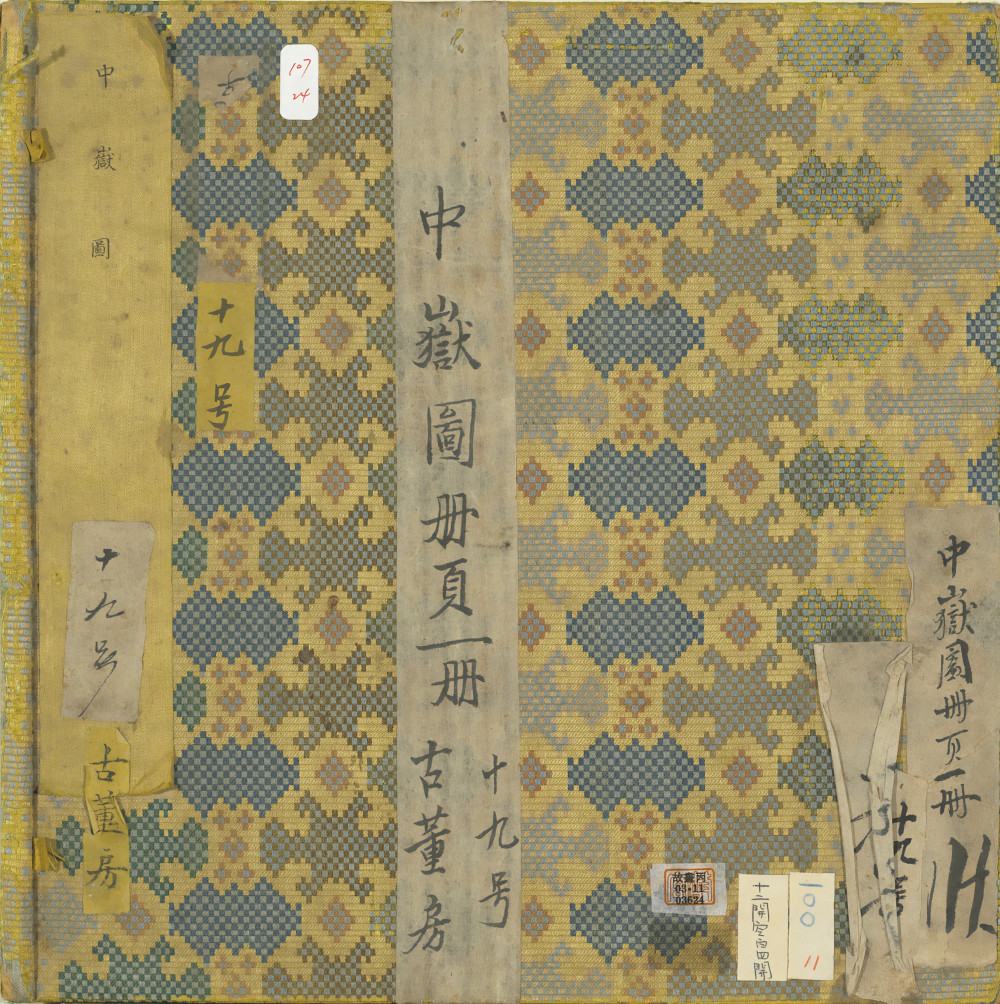 中嶽圖
十九号
古董房
十九号
107
24
中嶽圖册頁一册
古董房
十九号
中嶽圖册頁一册
十九号
故畫丙
03-11
03624
十二開空白四開
100
11